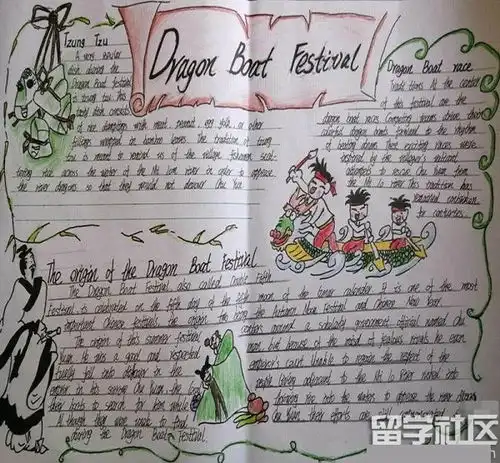 Dragon Boat Festival
Tzung Tzu
A very popular
dish during the
Dragon Boat festival
is tzung tzu. This
tasty dish consists
of rice dumplings with meat, peanut, egg yolk, or other
fillings wrapped in bamboo leaves. The tradition of tzung
tzu is meant to remind us of the village fishermen scat-
tering rice across the water of the Mi Low river in order to appease
the river dragons so that they would not devour Chu Yuan.
Dragon Boat race
Traditions At the center
of this festival are the
dragon boat races. Competing teams drive their
colorful dragon boats forward to the rhythm
of beating drums. These exciting races were
inspired by the villager's valiant
attempts to rescue Chu Yuan from
the Mi Lo river. This tradition has
remained unbroken
for centuries.
The origin of the Dragon Boat Festival
The Dragon Boat Festival, also called Double Fifth
Festival, is celebrated on the fifth day of the fifth moon of the lunar calendar. It is one of the most
important Chinese festivals, the Autumn Moon Festival and Chinese New Year.
The origins of this summer festival centers around a scholarly government official named Chu
Yuan. He was a good and respected man, but because of the misdeeds of jealous rivals he
emperor's court. Unable to regain the respect of the
emperor, in his sorrow Chu Yuan
their boats to search for him
during the Dragon Boat Festival.
留学社区